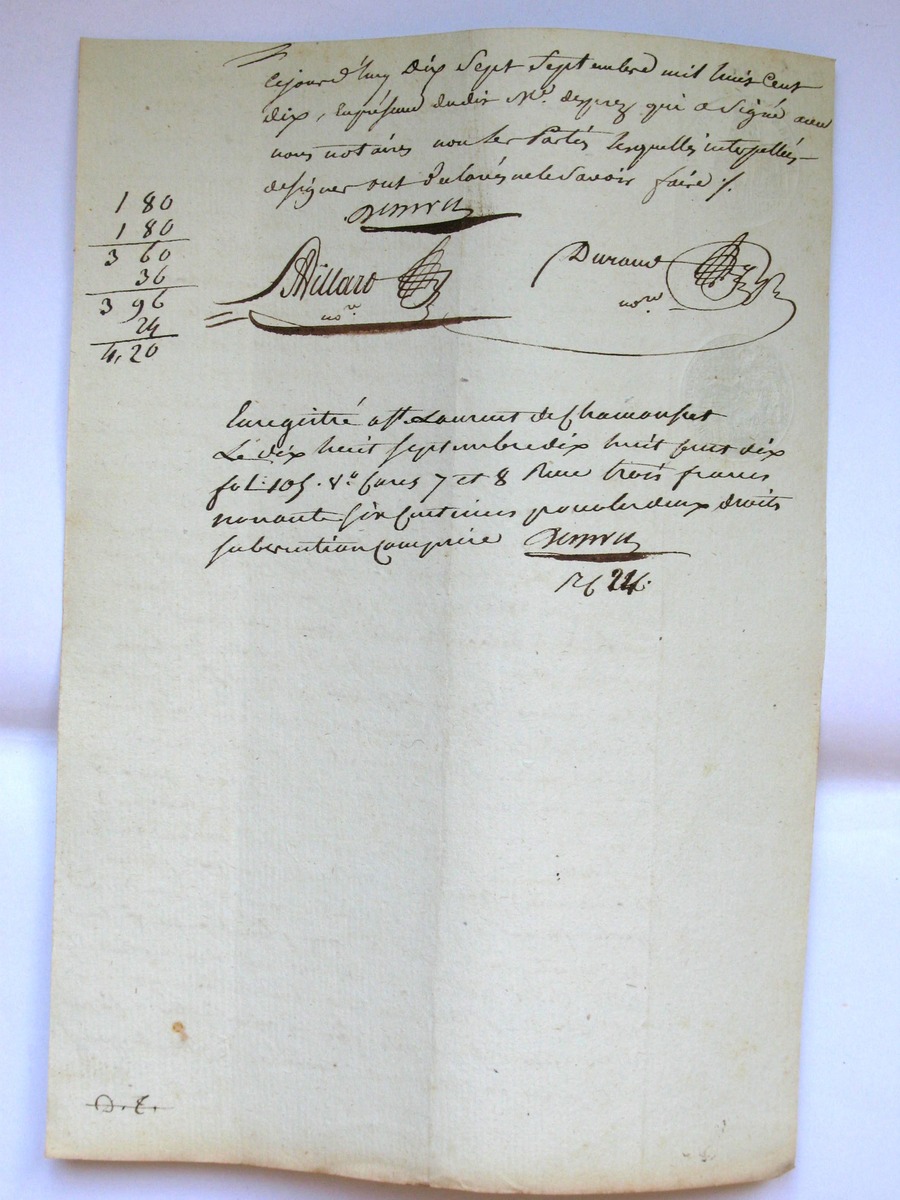 Cejourd'huy dix Sept Septembre mil huit Cent
dix, En présence dudit Mr. desprez qui a Signé avec
nous notaires non les Parties lesquelles interpellées
designer ont declarés ne le Savoir faire ./.
180
180
360
36
396
24
4,20
Billard
nore
Durand
nore
Enregistré a St Laurent de Chamousset
Le dix huit septembre dix huit cent dix
fol: 105. Vo Cases 7 et 8 Recu trois francs
nonante six centimes pour les deux droits
subvention comprise